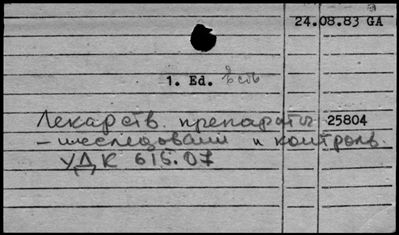 24.08.83 GA
1. Ed.
Лекарств. препараты 25804
– исследовани и контроль.
УДК 615.07